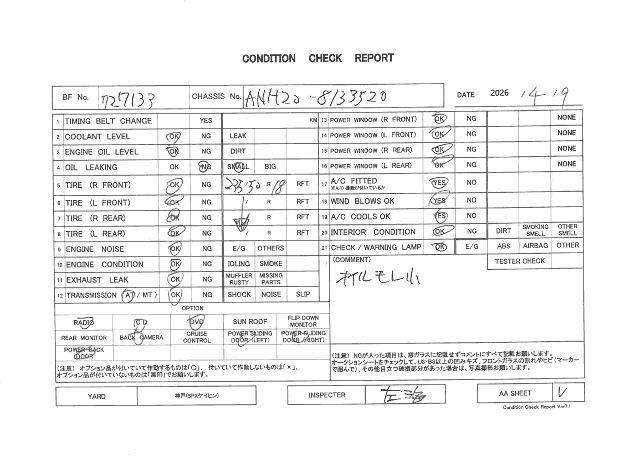 CONDITION CHECK REPORT
BF No. 727133 CHASSIS No. ANH20-8133520 DATE 2026 4-19
1 TIMING BELT CHANGE YES KM 13 POWER WINDOW (R FRONT) OK NG NONE
2 COOLANT LEVEL OK NG LEAK 14 POWER WINDOW (L FRONT) OK NG NONE
3 ENGINE OIL LEVEL OK NG DIRT 15 POWER WINDOW (R REAR) OK NG NONE
4 OIL LEAKING OK NG SMALL BIG 16 POWER WINDOW (L REAR) OK NG NONE
5 TIRE (R FRONT) OK NG 235/50 R 18 RFT 17 A/C FITTED YES NO
6 TIRE (L FRONT) OK NG / R RFT 18 WIND BLOWS OK YES NO
7 TIRE (R REAR) OK NG / R RFT 19 A/C COOLS OK YES NO
8 TIRE (L REAR) OK NG / R RFT 20 INTERIOR CONDITION OK NG DIRT SMOKING SMELL OTHER SMELL
9 ENGINE NOISE OK NG E/G OTHERS 21 CHECK / WARNING LAMP OK E/G ABS AIRBAG OTHER
10 ENGINE CONDITION OK NG IDLING SMOKE (COMMENT) TESTER CHECK
11 EXHAUST LEAK OK NG MUFFLER RUSTY MISSING PARTS オイルモレ小
12 TRANSMISSION (AT / MT) OK NG SHOCK NOISE SLIP
OPTION
RADIO CD DVD SUN ROOF FLIP DOWN MONITOR
REAR MONITOR BACK CAMERA CRUISE CONTROL POWER SLIDING DOOR (LEFT) POWER SLIDING DOOR (RIGHT)
POWER BACK DOOR
(注意) オプション品が付いていて作動するものは「○」、付いていて作動しないものは「×」、
オプション品が付いていないものは「黒印」でお願いします。
(注意) NGが入った項目は、窓ガラスに記載せずコメントにすべて記載お願いします。
オークションシートをチェックして、US・B3以上の凹みキズ、フロントガラスの割れやヒビ(マーカー
で囲んで)、その他目立つ破損部分があった場合は、写真撮影お願いします。
YARD 神戸(SPXケイヒン) INSPECTER AA SHEET V
Condition Check Report Ver7.1